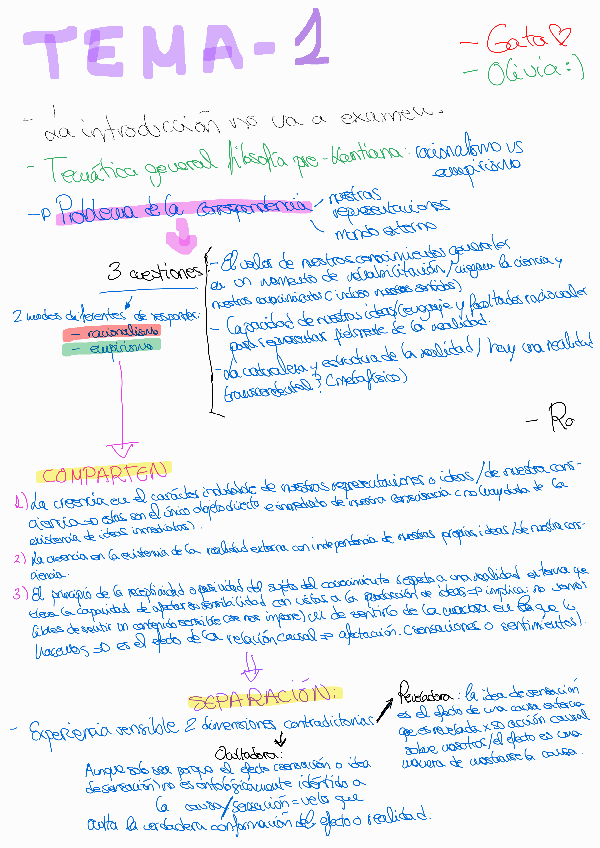 TEMA-1
- Gata ♡
- Olivia :)
- La introducción no va a examen.
- Temática general filosofía pre-kantiana: racionalismo vs
empirismo
→ Problema de la correspondencia
nuestras
representaciones
mundo externo
3 cuestiones
- El valor de nuestros conocimientos generales
en un momento de / la ciencia y
nuestros conocimientos (incluso nuestros sentidos)
- Capacidad de nuestras ideas/lenguaje y facultades racionales
para representar fielmente de la realidad.
- La naturaleza y estructura de la realidad / hay una realidad
transcendental? (metafísico)
2 modos diferentes de responder:
- racionalismo
- empirismo
- Ra
COMPARTEN
1) La creencia en el carácter indudable de nuestras representaciones o ideas / de nuestra cons-
ciencia → estas son el único objeto directo e inmediato de nuestra consciencia (no hay duda de la
existencia de ideas inmediatas).
2) La creencia en la existencia de la realidad externa con independencia de nuestras propias ideas / de nuestra cons-
ciencia.
3) El principio de la receptividad o pasividad del sujeto del conocimiento respecto a una realidad externa que
tiene la capacidad de afectar su sensibilidad con vistas a la producción de ideas → implica: no somos
libres de sentir un contenido sensible (se nos impone) ni de sentirlo de la manera en la que lo
hacemos → es el efecto de la relación causal → afectación. (sensaciones o sentimientos).
SEPARACIÓN:
- Experiencia sensible 2 dimensiones contradictorias
Reveladora: la idea de sensación
es el efecto de una causa externa
que es revelada x su acción causal
sobre nosotros/el efecto es una
manera de mostrarse la causa.
Ocultadora:
Aunque solo sea porque el efecto (sensación o idea
de sensación) no es ontológicamente idéntico a
la causa/sensación = velo que
oculta la verdadera conformación del efecto o realidad.